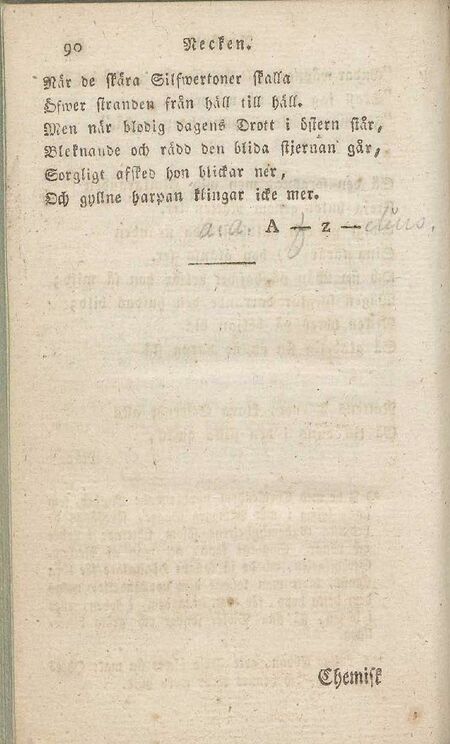 90 Necken.
När de skära Silfwertoner skalla
Öfwer stranden från häll till häll.
Men när blodig dagens Drott i östern står,
Bleknande och rädd den blida stjernan går,
Sorgligt afsked hon blickar ner,
Och gyllne harpan klingar icke mer.
A — z —
Chemisk